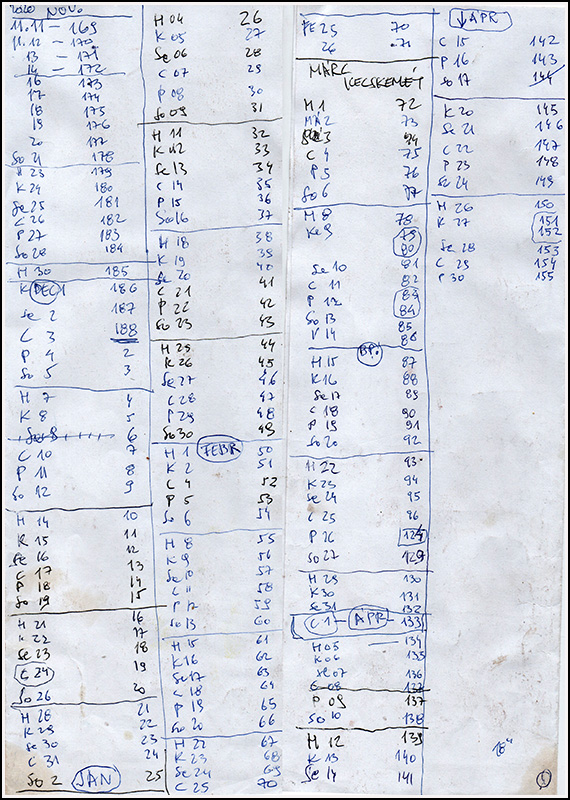 2020 NOV.
11.11 - 169
11.12 - 170
13 - 171
14 - 172
16 173
17 174
18 175
19 176
20 177
So 21 178
H 23 179
K 24 180
Se 25 181
C 26 182
P 27 183
So 28 184
H 30 185
K DEC 1 186
Se 2 187
C 3 188
P 4 2
So 5 3
H 7 4
K 8 5
Se 9 6
C 10 7
P 11 8
So 12 9
H 14 10
K 15 11
Se 16 12
C 17 13
P 18 14
So 19 15
H 21 16
K 22 17
Se 23 18
C 24 19
So 26 20
H 28 21
K 29 22
Se 30 23
C 31 24
So 2 JAN 25
H 04 26
K 05 27
Se 06 28
C 07 29
P 08 30
So 09 31
H 11 32
K 12 33
Se 13 34
C 14 35
P 15 36
So 16 37
H 18 38
K 19 39
Se 20 40
C 21 41
P 22 42
So 23 43
H 25 44
K 26 45
Se 27 46
C 28 47
P 29 48
So 30 49
H 1 FEBR 50
K 2 51
C 4 52
P 5 53
So 6 54
H 8 55
K 9 56
Se 10 57
C 11 58
P 12 59
So 13 60
H 15 61
K 16 62
Se 17 63
C 18 64
P 19 65
So 20 66
H 22 67
K 23 68
Se 24 69
C 25 70
FE 25 70
26 71
MÁRC
KECSKEMÉT
H 1 72
MA 2 73
Se 3 74
C 4 75
P 5 76
So 6 77
H 8 78
Ke 9 79
80
Se 10 81
C 11 82
P 12 83
84
So 13 85
V 14 86
BP.
H 15 87
K 16 88
Se 17 89
C 18 90
P 19 91
So 20 92
H 22 93
K 23 94
Se 24 95
C 25 96
P 26 124
So 27 129
H 29 130
K 30 131
Se 31 132
C 1 - APR - 133
H 05 134
K 06 135
Se 07 136
C 08 137
P 09 137
So 10 138
H 12 139
K 13 140
Se 14 141
↓ APR
C 15 142
P 16 143
So 17 144
K 20 145
Se 21 146
C 22 147
P 23 148
Se 24 149
H 26 150
K 27 151
152
Se 28 153
C 29 154
P 30 155
18"